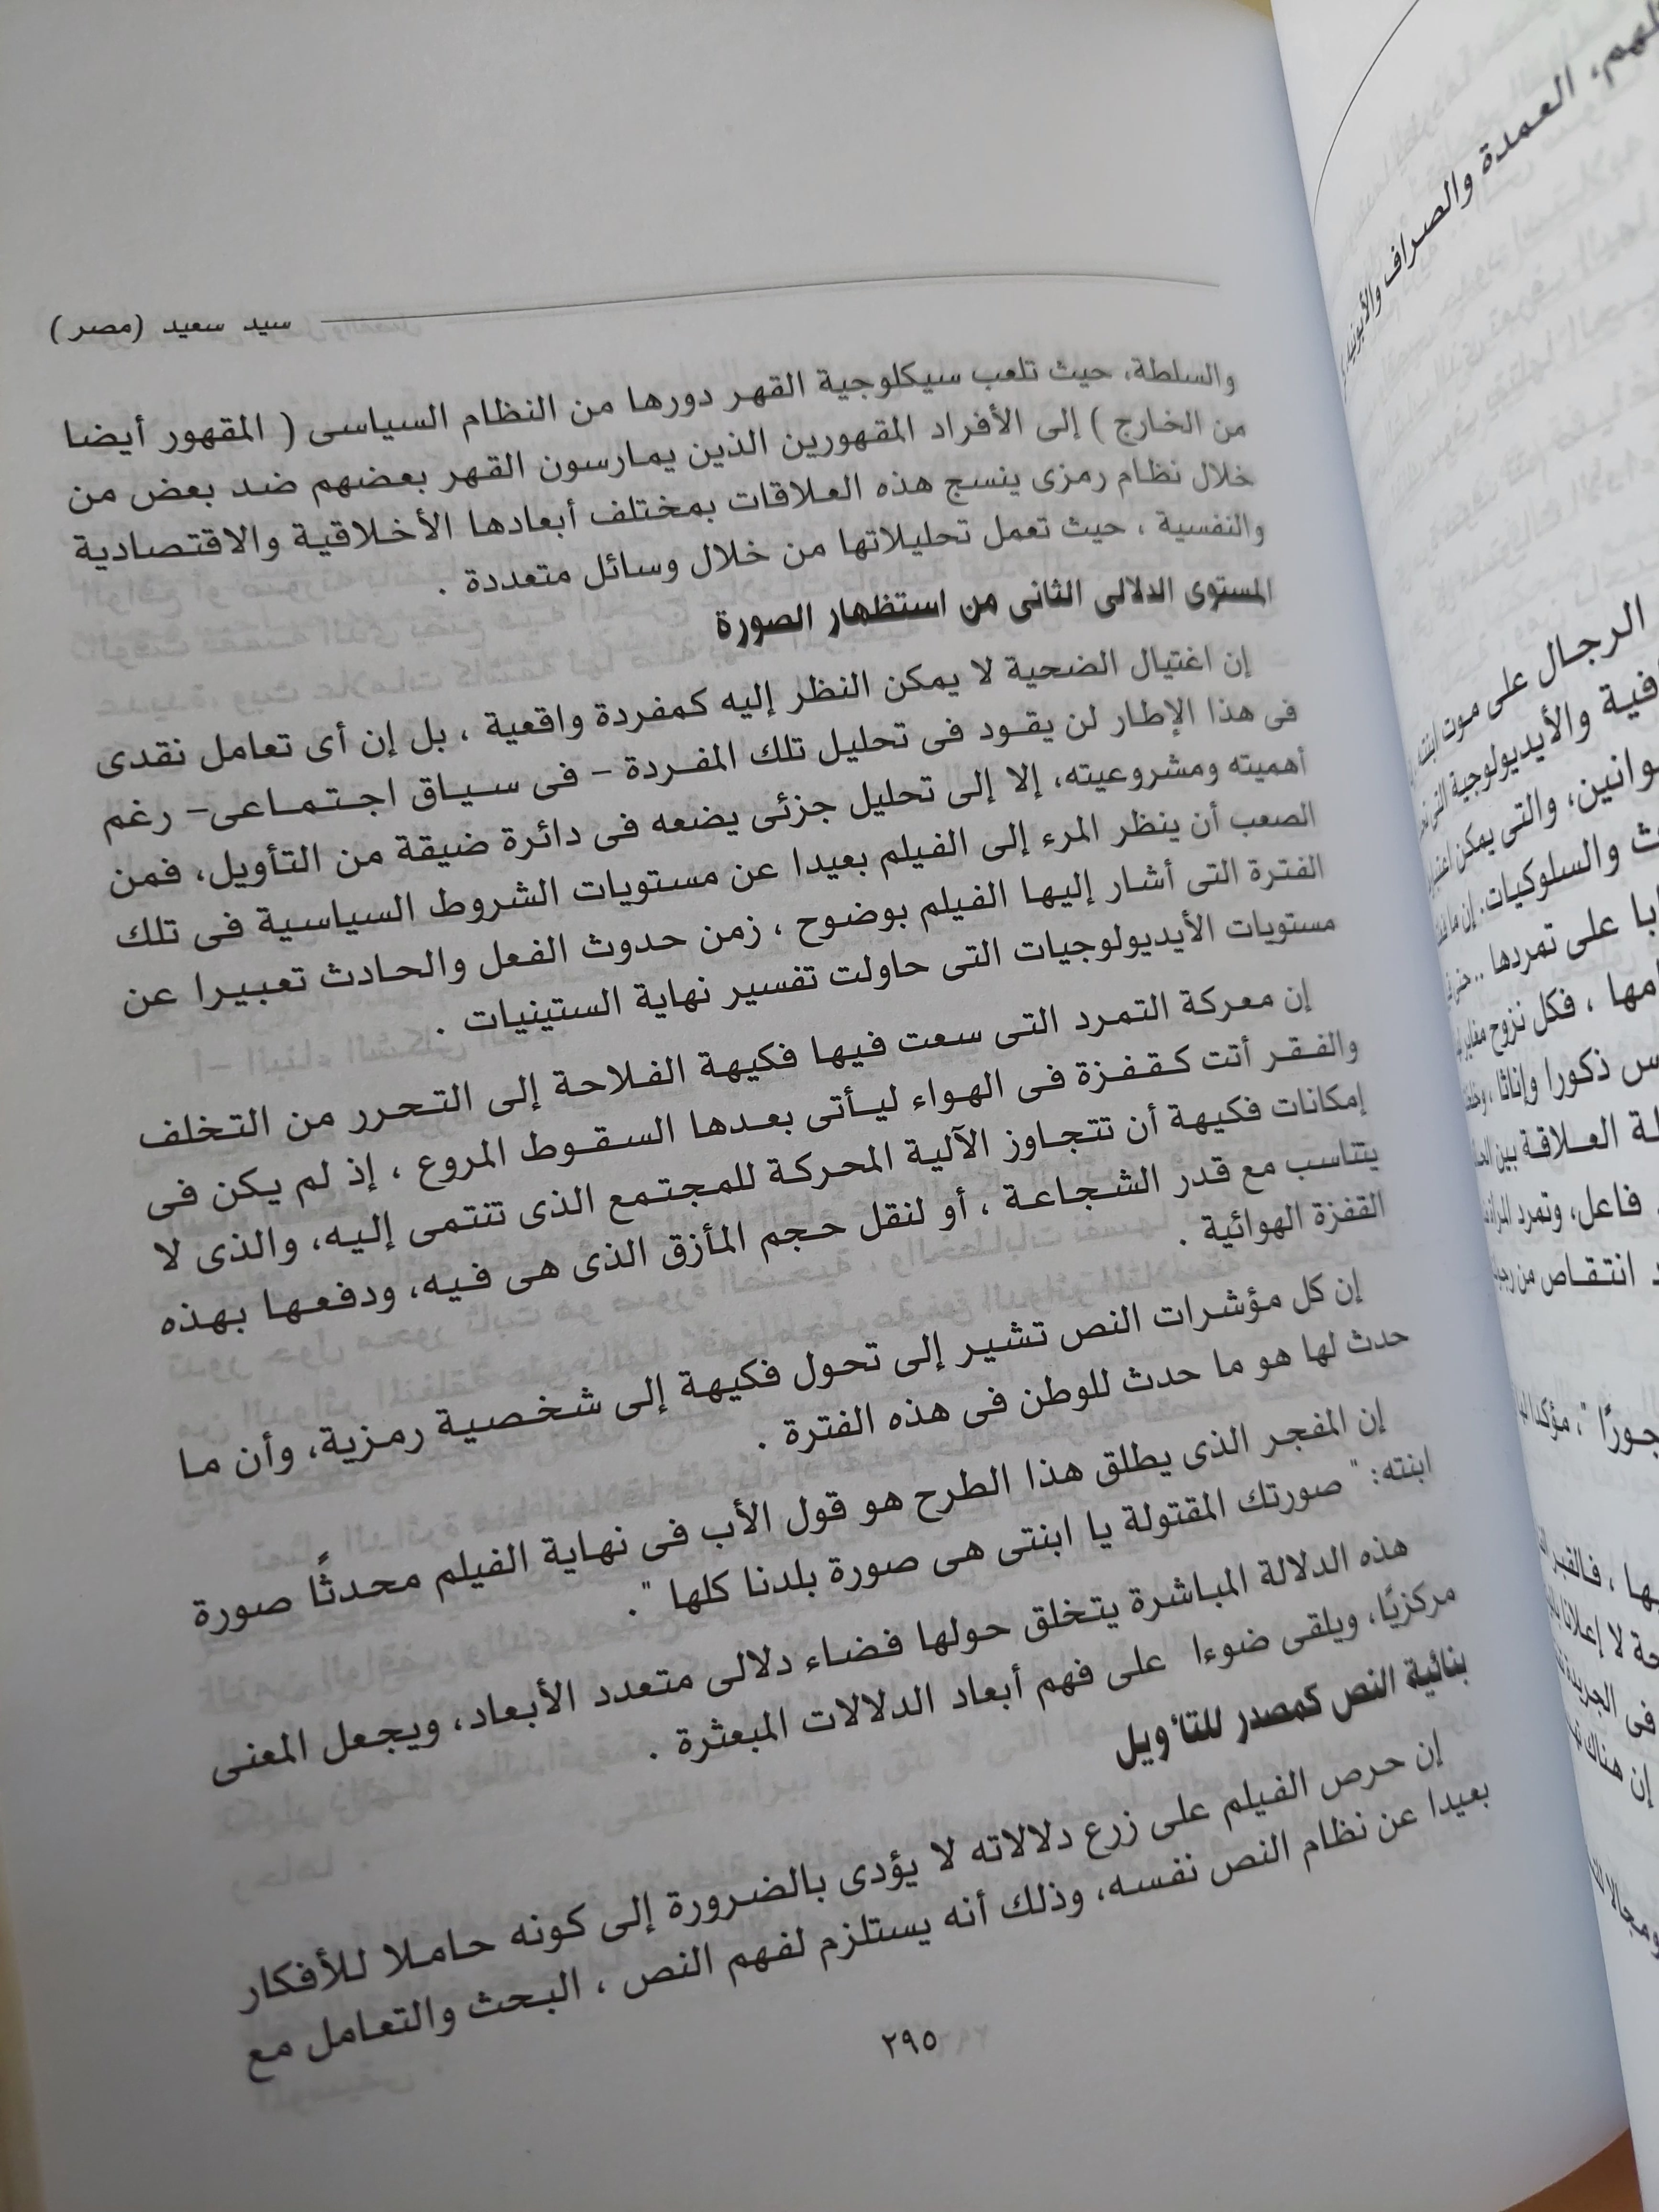 سيد سعيد (مصر)
والسلطة، حيث تلعب سيكلوجية القهر دورها من النظام السياسى ( المقهور أيضا
من الخارج ) إلى الأفراد المقهورين الذين يمارسون القهر بعضهم ضد بعض من
خلال نظام رمزى ينسج هذه العلاقات بمختلف أبعادها الأخلاقية والاقتصادية
والنفسية ، حيث تعمل تحليلاتها من خلال وسائل متعددة .
المستوى الدلالى الثانى من استظهار الصورة
إن اغتيال الضحية لا يمكن النظر إليه كمفردة واقعية ، بل إن أى تعامل نقدى
فى هذا الإطار لن يقود فى تحليل تلك المفردة - فى سياق اجتماعى- رغم
أهميته ومشروعيته، إلا إلى تحليل جزئى يضعه فى دائرة ضيقة من التأويل، فمن
الصعب أن ينظر المرء إلى الفيلم بعيدا عن مستويات الشروط السياسية فى تلك
الفترة التى أشار إليها الفيلم بوضوح ، زمن حدوث الفعل والحادث تعبيرا عن
مستويات الأيديولوجيات التى حاولت تفسير نهاية الستينيات .
إن معركة التمرد التى سعت فيها فكيهة الفلاحة إلى التحرر من التخلف
والفقر أتت كقفزة فى الهواء ليأتى بعدها السقوط المروع ، إذ لم يكن فى
إمكانات فكيهة أن تتجاوز الآلية المحركة للمجتمع الذى تنتمى إليه، والذى لا
يتناسب مع قدر الشجاعة ، أو لنقل حجم المأزق الذى هى فيه، ودفعها بهذه
القفزة الهوائية .
إن كل مؤشرات النص تشير إلى تحول فكيهة إلى شخصية رمزية، وأن ما
حدث لها هو ما حدث للوطن فى هذه الفترة .
إن المفجر الذى يطلق هذا الطرح هو قول الأب فى نهاية الفيلم محدثًا صورة
ابنته: " صورتك المقتولة يا ابنتى هى صورة بلدنا كلها ".
هذه الدلالة المباشرة يتخلق حولها فضاء دلالى متعدد الأبعاد، ويجعل المعنى
مركزيًا، ويلقى ضوءا على فهم أبعاد الدلالات المبعثرة .
بنائية النص كمصدر للتأويل
إن حرص الفيلم على زرع دلالاته لا يؤدى بالضرورة إلى كونه حاملا للأفكار
بعيدا عن نظام النص نفسه، وذلك أنه يستلزم لفهم النص ، البحث والتعامل مع
٢٩٥
العمدة والصراف
الرجال على موت ابنته
والأيديولوجية
والتى يمكن
والسلوكيات.
على تمردها ..
، فكل نزوح
ذكورا وإناثا ،
العلاقة بين
فاعل، وتمرد
انتقاص من